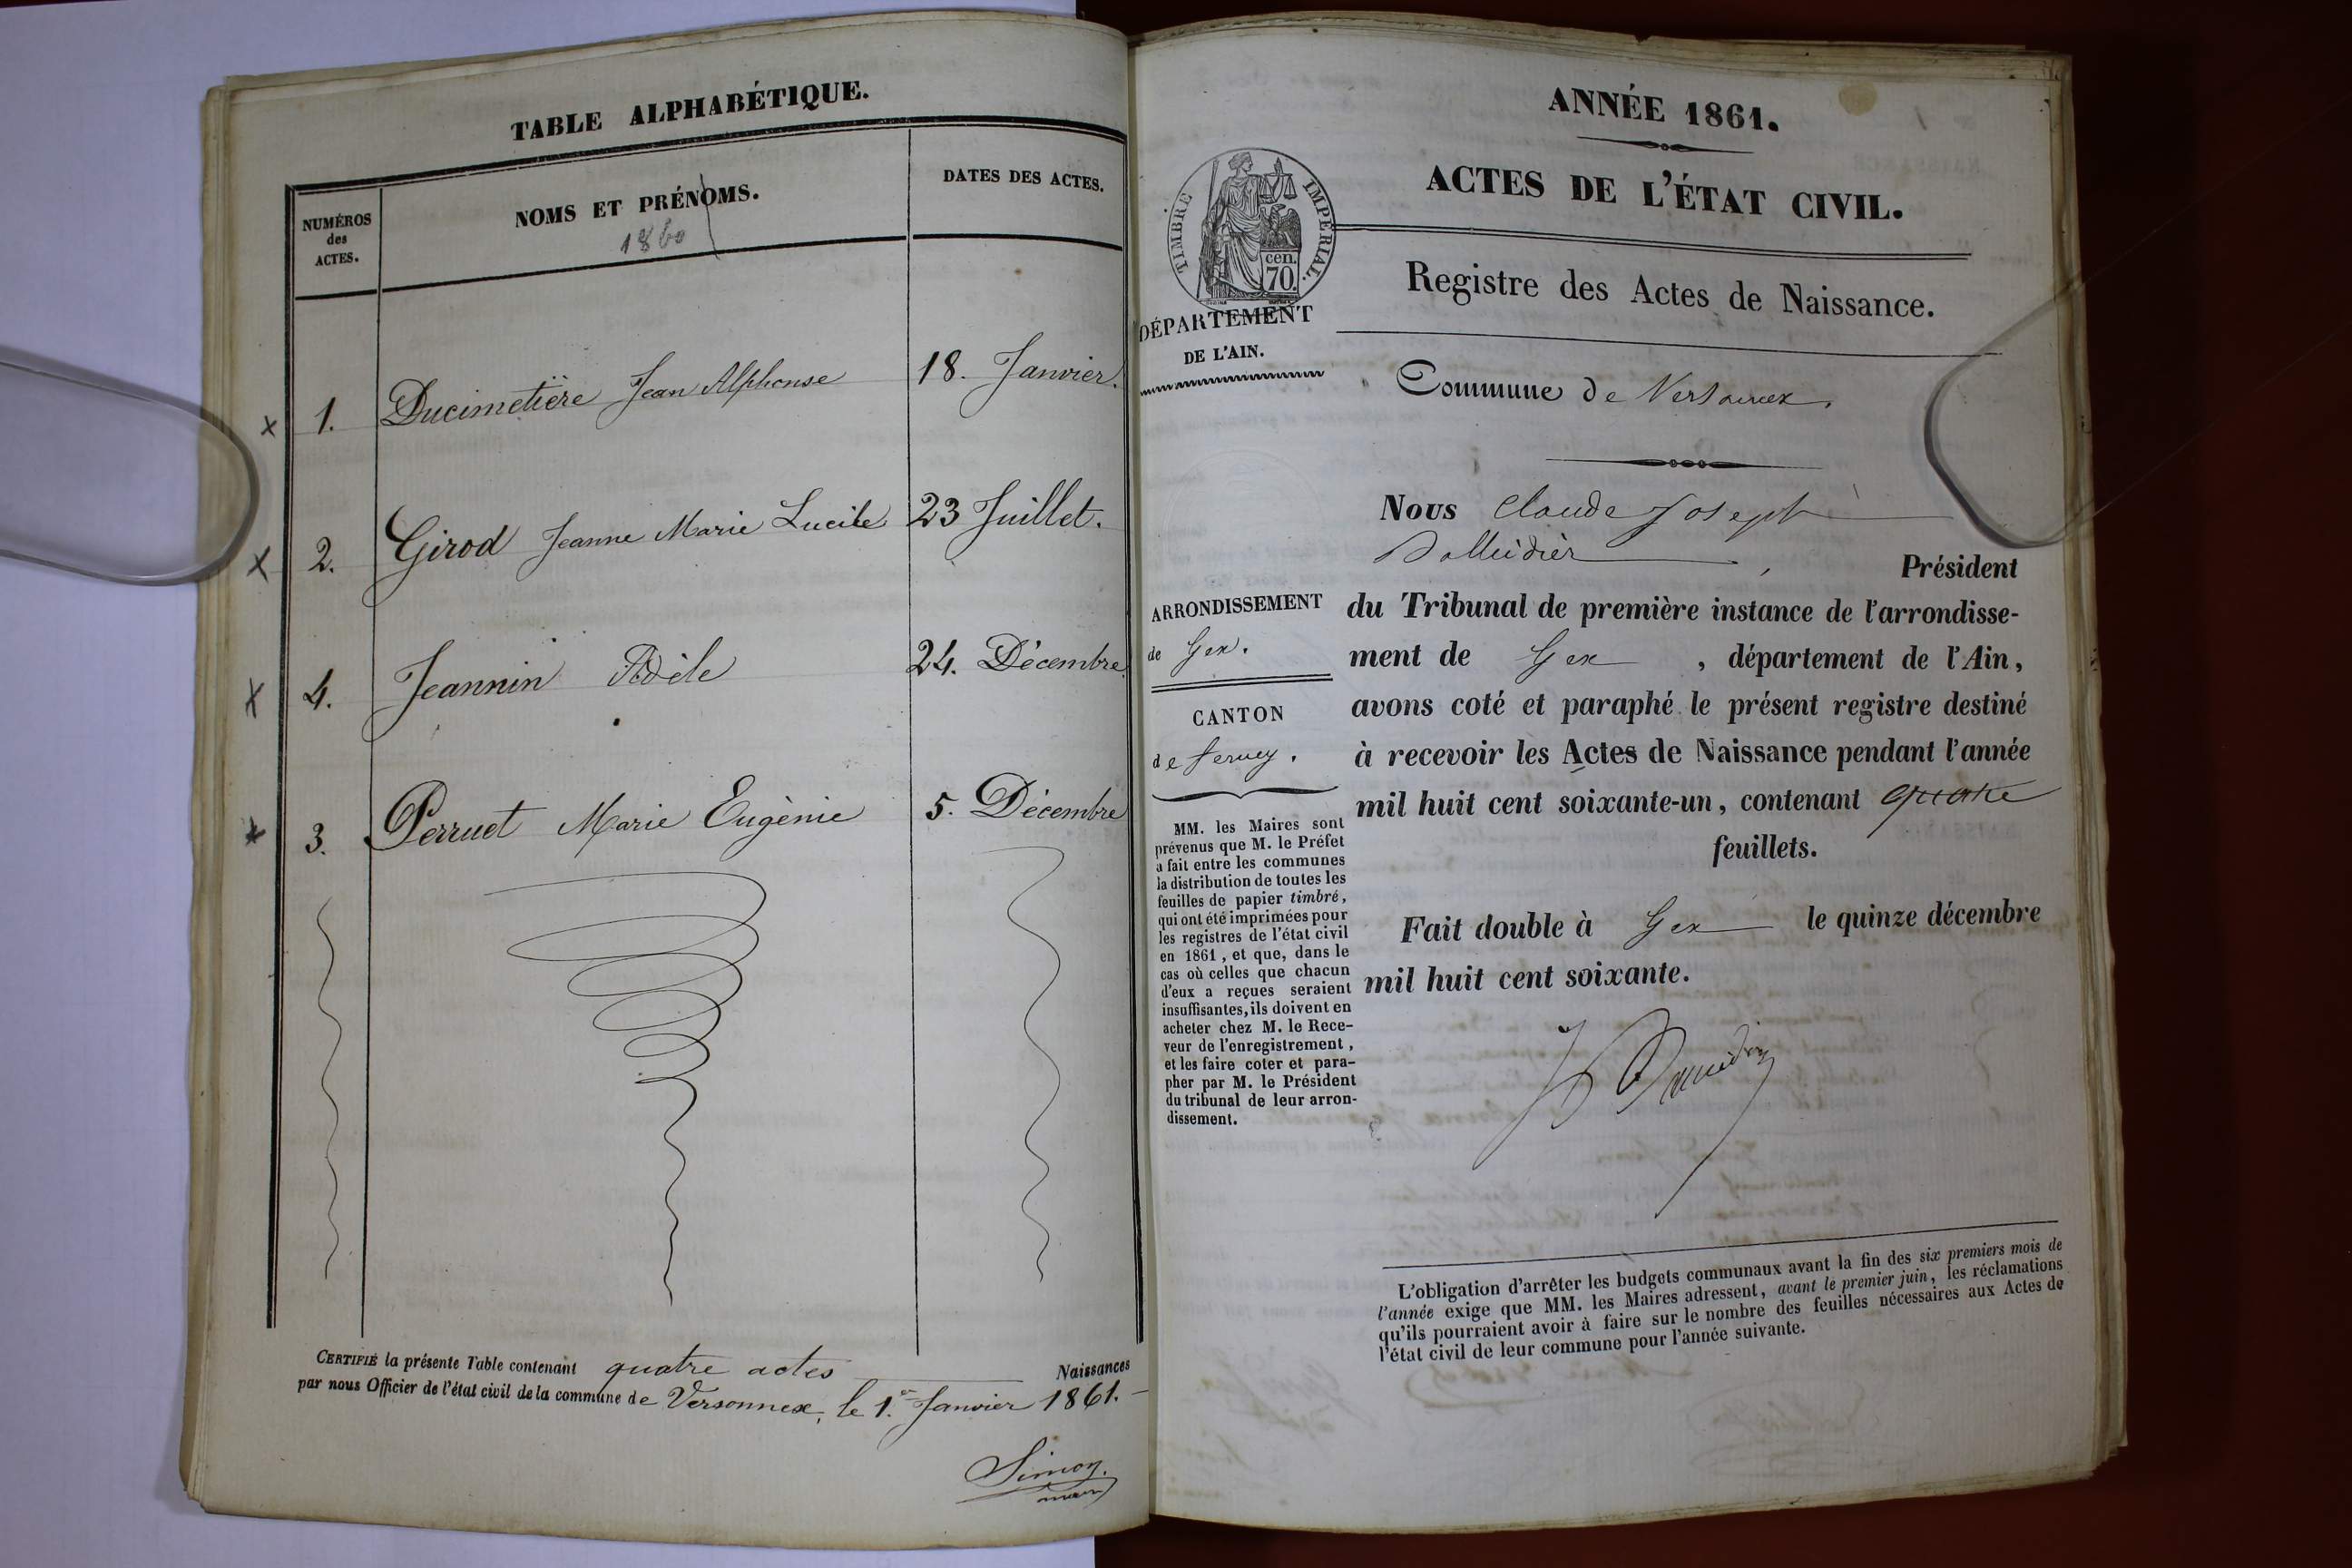 TABLE ALPHABÉTIQUE.
NUMÉROS
des
ACTES.
NOMS ET PRÉNOMS.
1860
DATES DES ACTES.
1. Ducimetière Jean Alphonse 18. Janvier.
2. Girod Jeanne Marie Lucile 23 Juillet.
4. Jeannin Adèle 24. Décembre
3. Perruet Marie Eugènie 5. Décembre
CERTIFIÉ la présente Table contenant quatre actes Naissances
par nous Officier de l'état civil de la commune de Versonnex, le 1.er Janvier 1861.
Simon.
maire
ANNÉE 1861.
ACTES DE L'ÉTAT CIVIL.
TIMBRE IMPÉRIAL.
cen.
70.
Registre des Actes de Naissance.
DÉPARTEMENT
DE L'AIN.
Commune de Versonnex.
Nous Claude Joseph
Président
ARRONDISSEMENT
de Gex.
CANTON
de Ferney.
du Tribunal de première instance de l'arrondisse-
ment de Gex, département de l'Ain,
avons coté et paraphé le présent registre destiné
à recevoir les Actes de Naissance pendant l'année
mil huit cent soixante-un, contenant quatre
feuillets.
Fait double à Gex le quinze décembre
mil huit cent soixante.
MM. les Maires sont
prévenus que M. le Préfet
a fait entre les communes
la distribution de toutes les
feuilles de papier timbré,
qui ont été imprimées pour
les registres de l'état civil
en 1861, et que, dans le
cas où celles que chacun
d'eux a reçues seraient
insuffisantes, ils doivent en
acheter chez M. le Rece-
veur de l'enregistrement,
et les faire coter et para-
pher par M. le Président
du tribunal de leur arron-
dissement.
L'obligation d'arrêter les budgets communaux avant la fin des six premiers mois de
l'année exige que MM. les Maires adressent, avant le premier juin, les réclamations
qu'ils pourraient avoir à faire sur le nombre des feuilles nécessaires aux Actes de
l'état civil de leur commune pour l'année suivante.